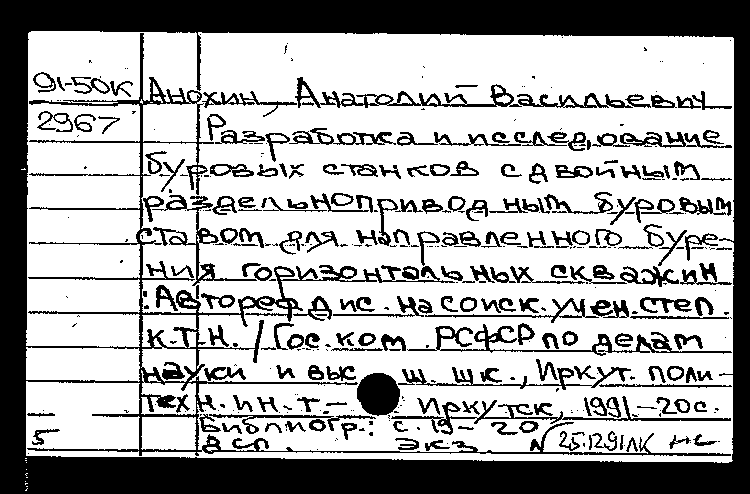 91-50К Анохин, Анатолий Васильевич
2967 Разработка и исследование
буровых станков с двойным
раздельноприводным буровым
ставом для направленного буре-
ния горизонтальных скважин
: Автореф. дис. на соиск. учен. степ.
к.т.н. / Гос. ком. РСФСР по делам
науки и высш. шк., Иркут. поли-
техн. ин-т. - Иркутск, 1991. - 20 с.
Библиогр.: с. 19-20
5 экз. 25.12.91